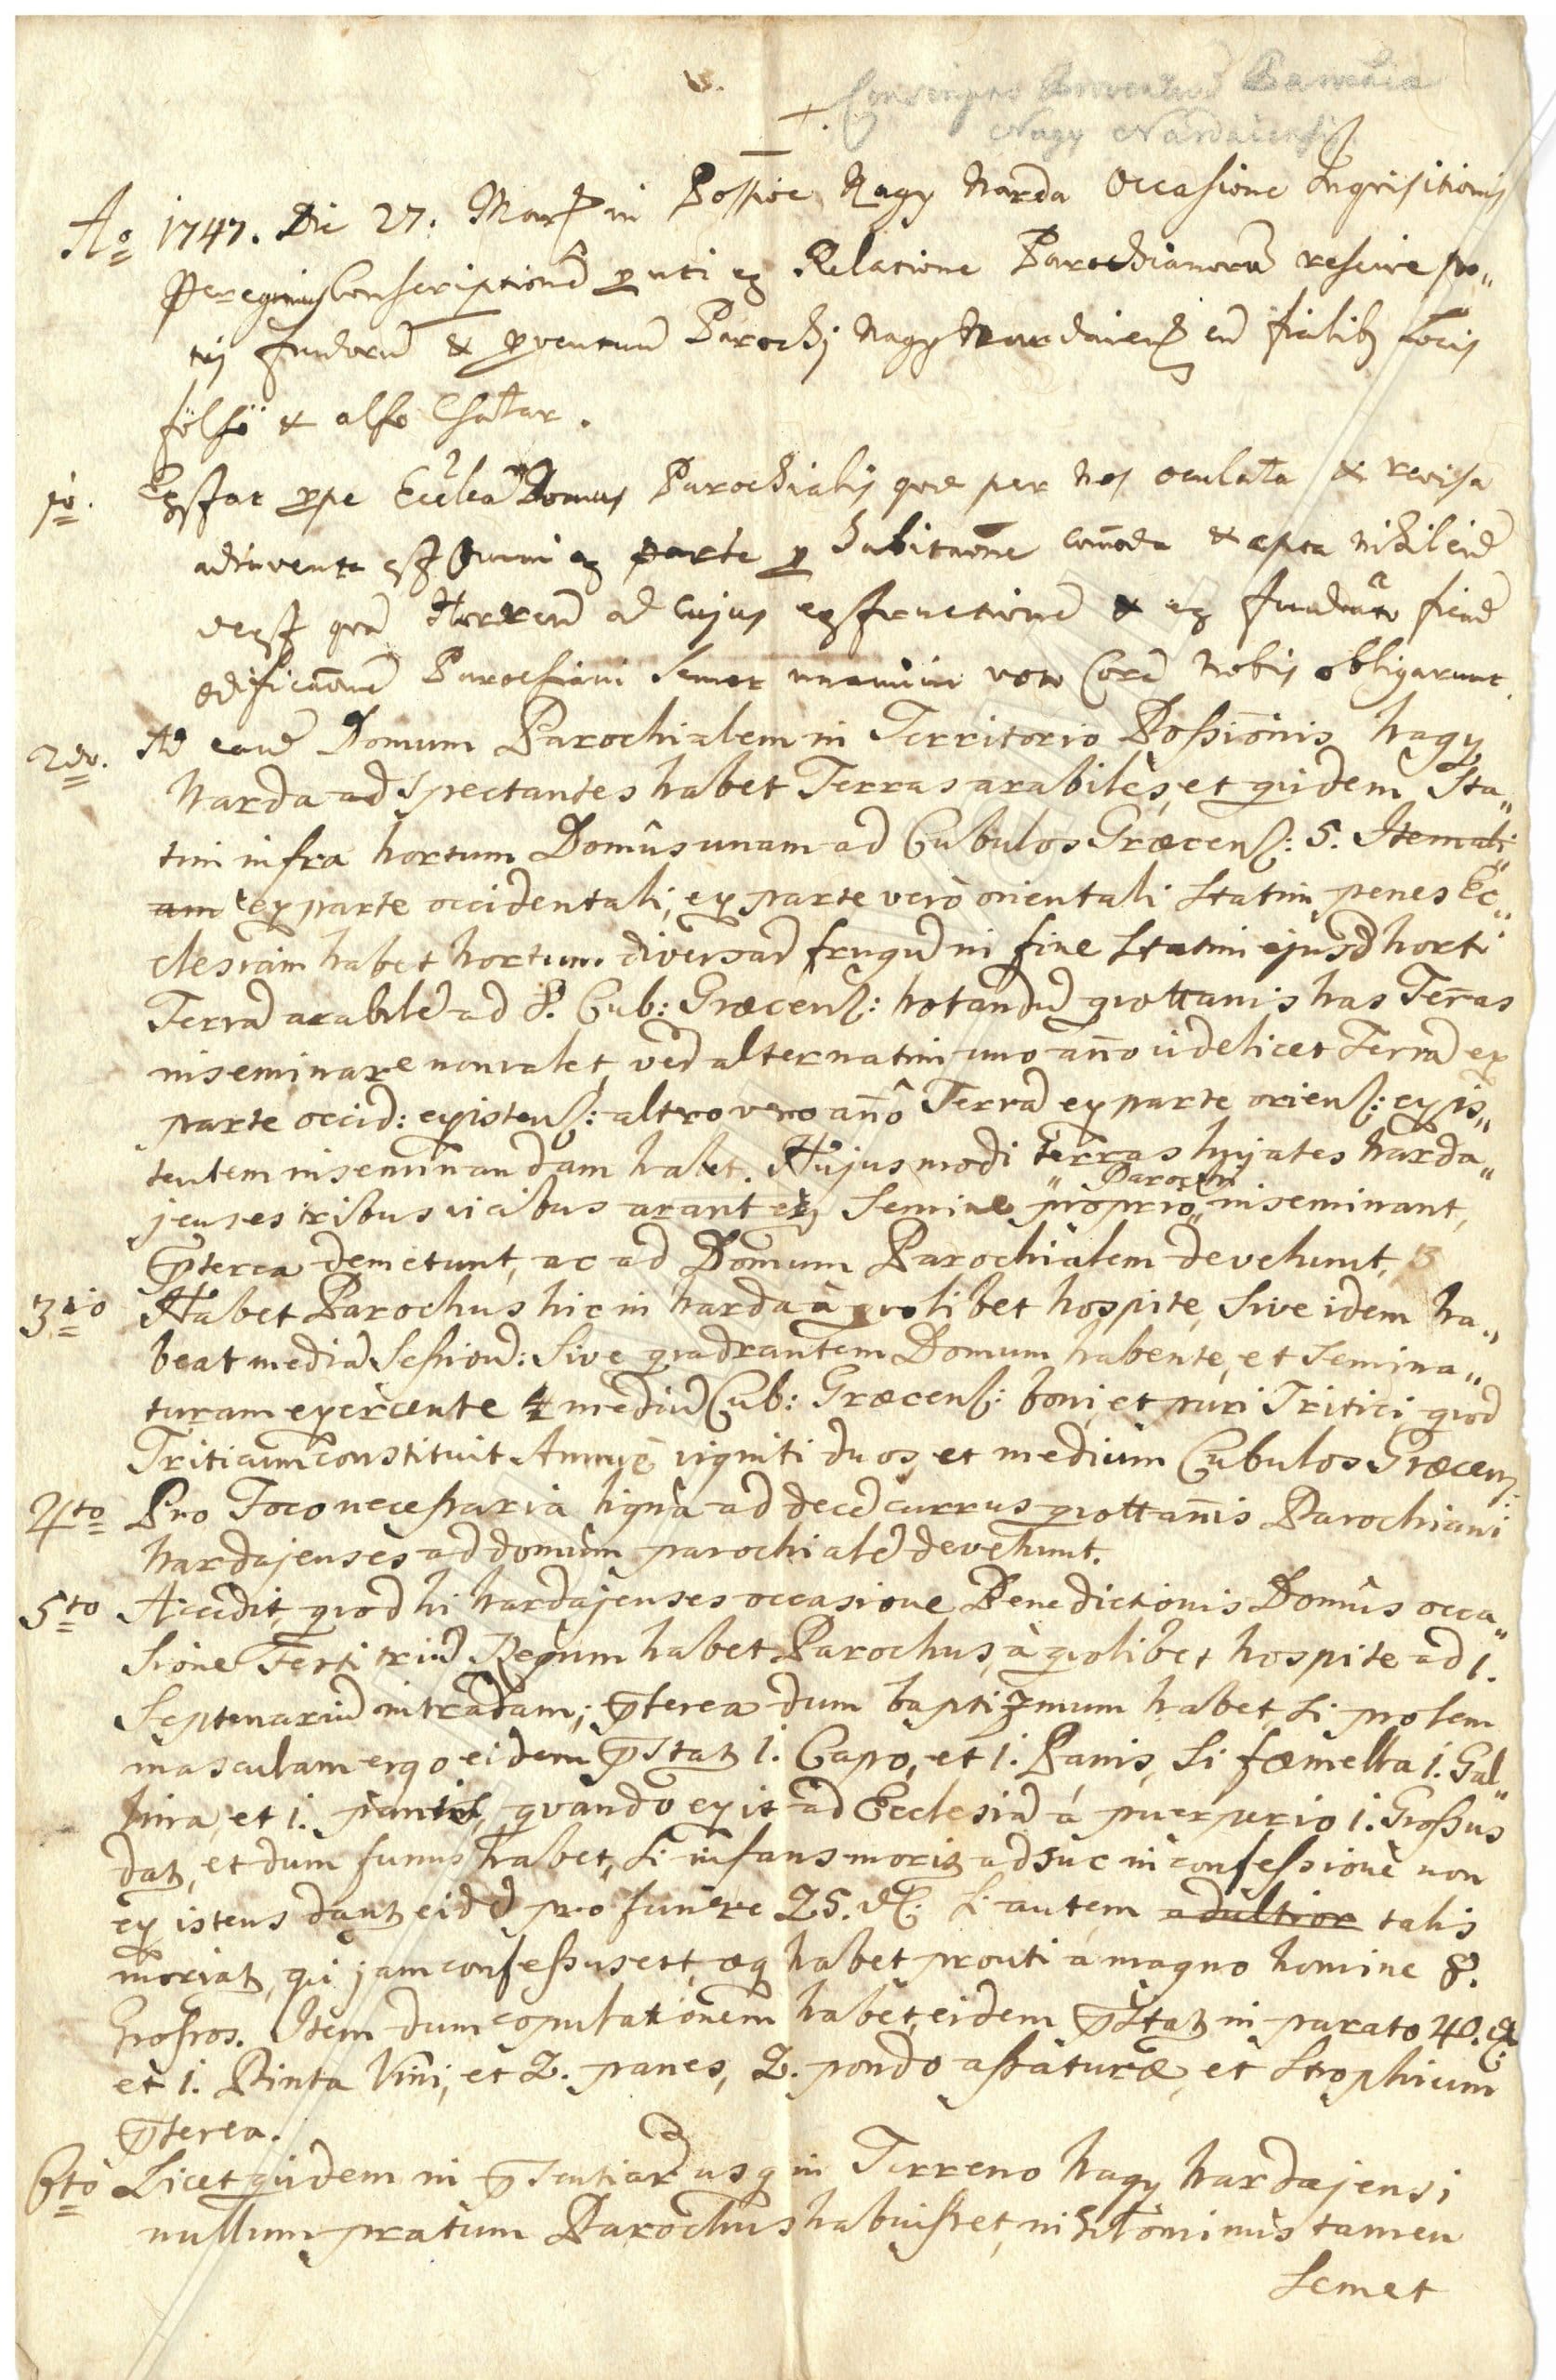 Conscriptio Proventuum Parochiae
Nagy Nardaiensis
Ao 1747. Die 27. Marty in Possioe Nagy Narda Occasione Inqvisitionis
Peregimus Conscriptionē puti ex Relatione Parochianorū rescire po„
tuj fundorū & pventuum Parochj Nagy Nardaiens cū filialibq Locis
fölsö & alsò Csatar.
1o. Exstat ppe Eccleām Domus Parochialis qvae per Nos oculata & revisa
adinventa est Omni ex parte p habitaōne com̄oda & apta nihil eid
deest qvā Horreum ad cujus exstructionē & ex fundamēto fiend
ædificaōnē Parochiani Semet unanimi voto Corā Nobis obligarunt.
2do. Ad eand Domum Parochialem in Territorio Possiōnis Nagy
Narda ad spectantes habet Terras arabiles, et qvidem Sta„
tim infra hortum Domûs unam ad Cubulos Græcens: 5. Item ali„
am ex parte occidentali, ex parte verò orientali statim penes Ec„
clesiam habet hortum diversar frugū in fine statim ejusd horti
Terrā arabilē ad 8. Cub: Græcens: Notandū qvottannis has Terras
inseminare non valet, sed alternatim uno an̄o videlicet Terrā ex
parte occid: existens: altro vero an̄ô Terrā ex parte oriens: exis„
tentem inseminandam habet. Hujusmodi terras hujates Narda„
Parochi
jenses tribus vicibus arant et, semine proprio, inseminant,
p̄terea demetunt, ac ad Domum Parochialem devehunt.
3tio Habet Parochus hic in Narda à qvolibet hospite, sive idem ha„
beat mediā Sessionē: Sive qvadrantem Domum habente, et Semina„
turam exercente mediū Cub: Græcens: boni, et puri Tritici, qvod
Triticum constituit Annuè viginti duos, et medium Cubulos Græcens:
4to Pro Foco necessaria ligna ad decē currus qvottan̄is Parochiani
Nardajenses ad domum parochialē devehunt.
5to Accedit, qvod hi Nardajenses occasione Benedictionis Domûs occa„
sione Festi triū Regum habet Parochus, à qvolibet hospite ad 1.
Septenariū intradam; p̄terea dum baptizmum habet, si prolem
masculam ergo eidem p̄stat 1. Capo, et 1. Panis, si fæmella 1. Gal„
lina, et 1. panis, qvando exit ad Ecclesiā à puerperio 1. Grossus
dat, et dum funus habet, si infans morit adhuc in confessione non
existens dant eidē pro funere 25. d: si autem adultior talis
moriat, qui jam confessus est, æq habet prouti à magno homine 8.
Grossos. Item dum copulationem habet, eidem p̄stat in parato 40. d:
et 1. Pinta Vini, et 2. panes, 2. pondo assaturæ, et Strophium
p̄terea.
6to Licet qvidem in p̄sentiar usq in Terreno Nagy Nardajensi
nullum pratum Parochus habuisset, nihilominus tamen
semet